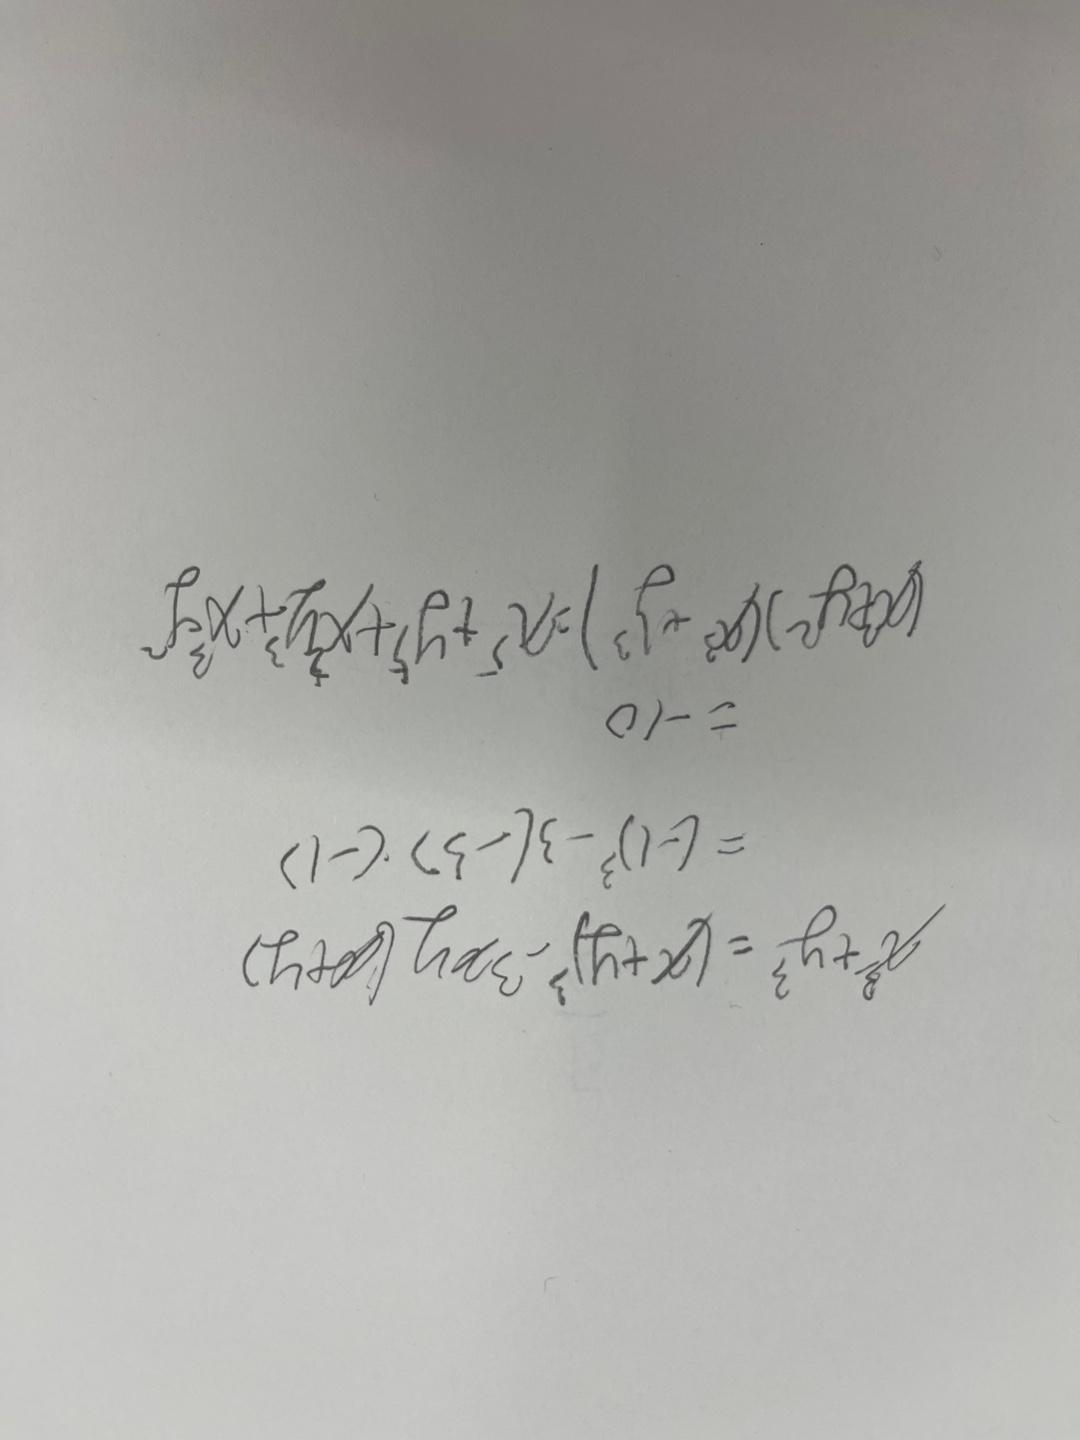 x³+y³ = (x+y)³-3xy(x+y)
= (-1)³-3(-3)·(-1)
= -10
(x²+y²)(x³+y³)=x⁵+y⁵+x²y³+x³y²